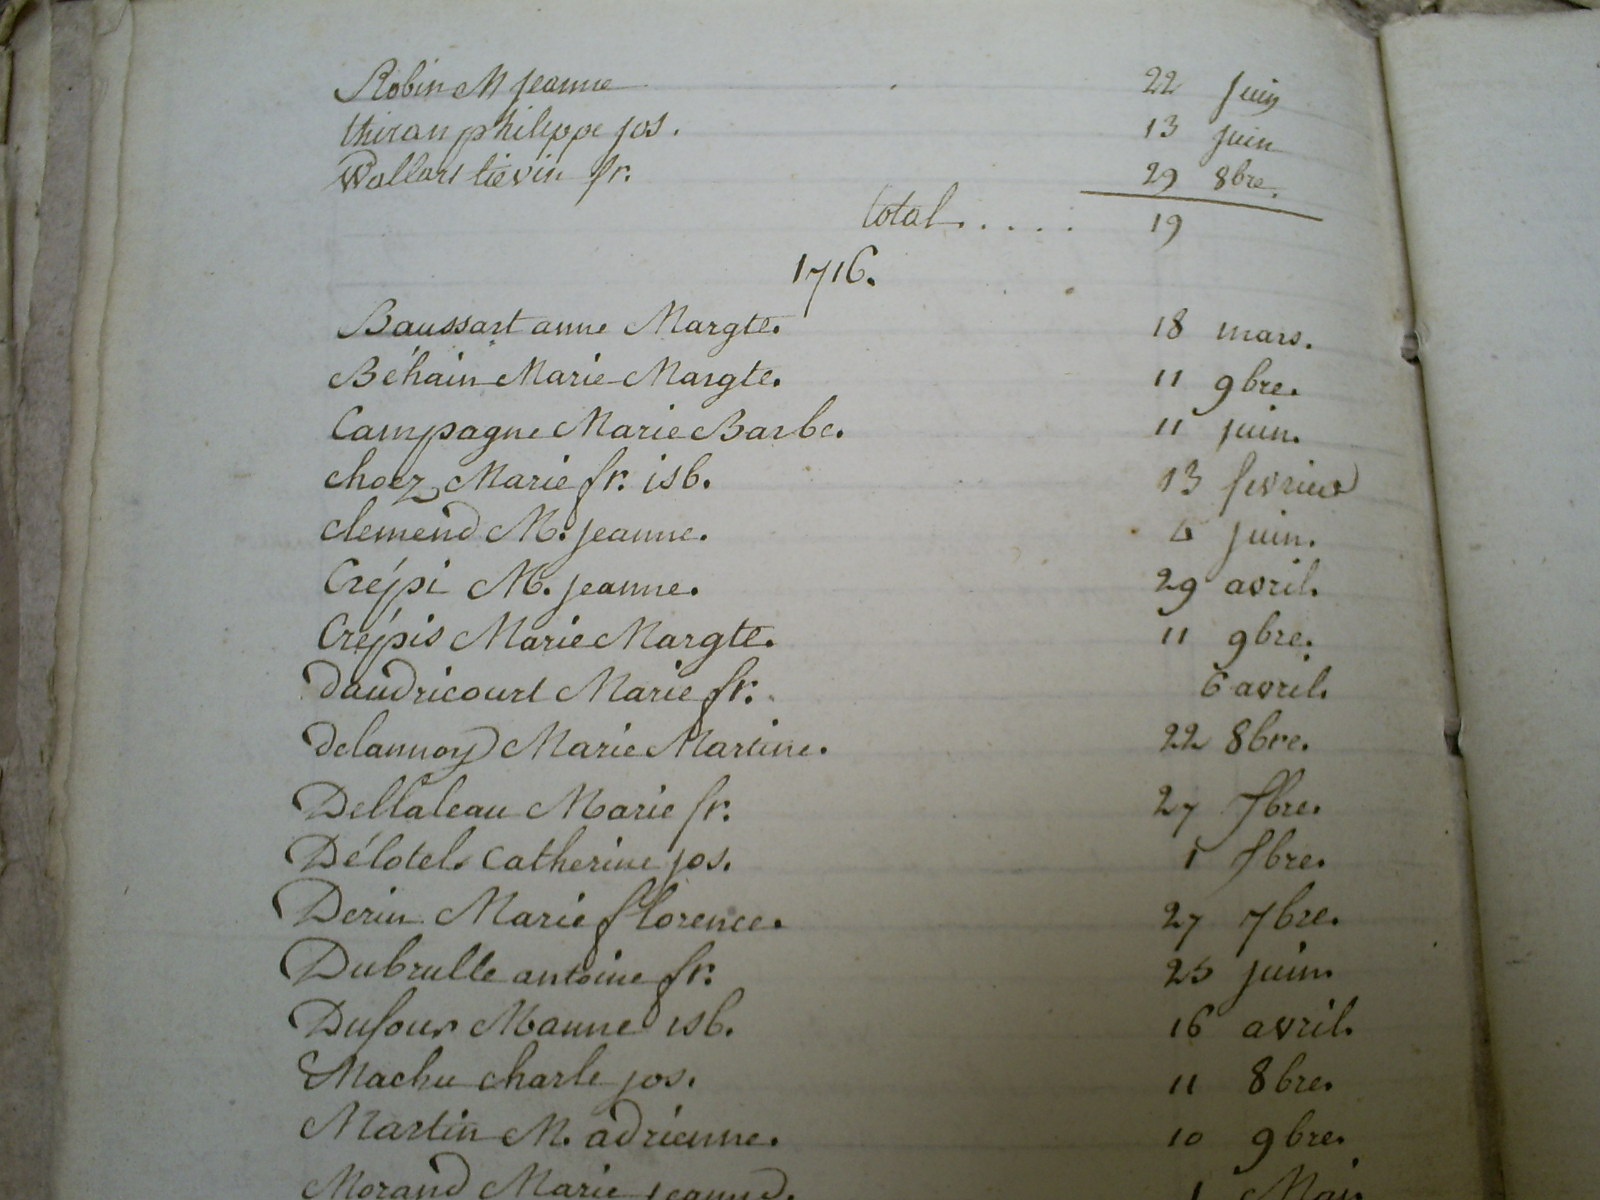 Robin M jeanne 22 juin
thiran philippe jos. 13 juin
Wallart lievin fr. 29 8bre.
total..... 19
1716.
Baussart anne Margte. 18 mars.
Béhain Marie Margte. 11 9bre.
Campagne Marie Barbe. 11 juin.
choez Marie fr. isb. 13 fevrier
clemend M. jeanne. 6 juin.
Crépi M. jeanne. 29 avril.
Crépis Marie Margte. 11 9bre.
daudricourt Marie fr. 6 avril.
delannoy Marie Martine. 22 8bre.
Dellaleau Marie fr. 27 7bre.
Délotel Catherine jos. 1 7bre.
Derin Marie florence. 27 7bre.
Dubrulle antoine fr. 25 juin.
Dufour Manne isb. 16 avril.
Machu charle jos. 11 8bre.
Martin M. adrienne. 10 9bre.
Morand Marie jeanne. 1 Mai